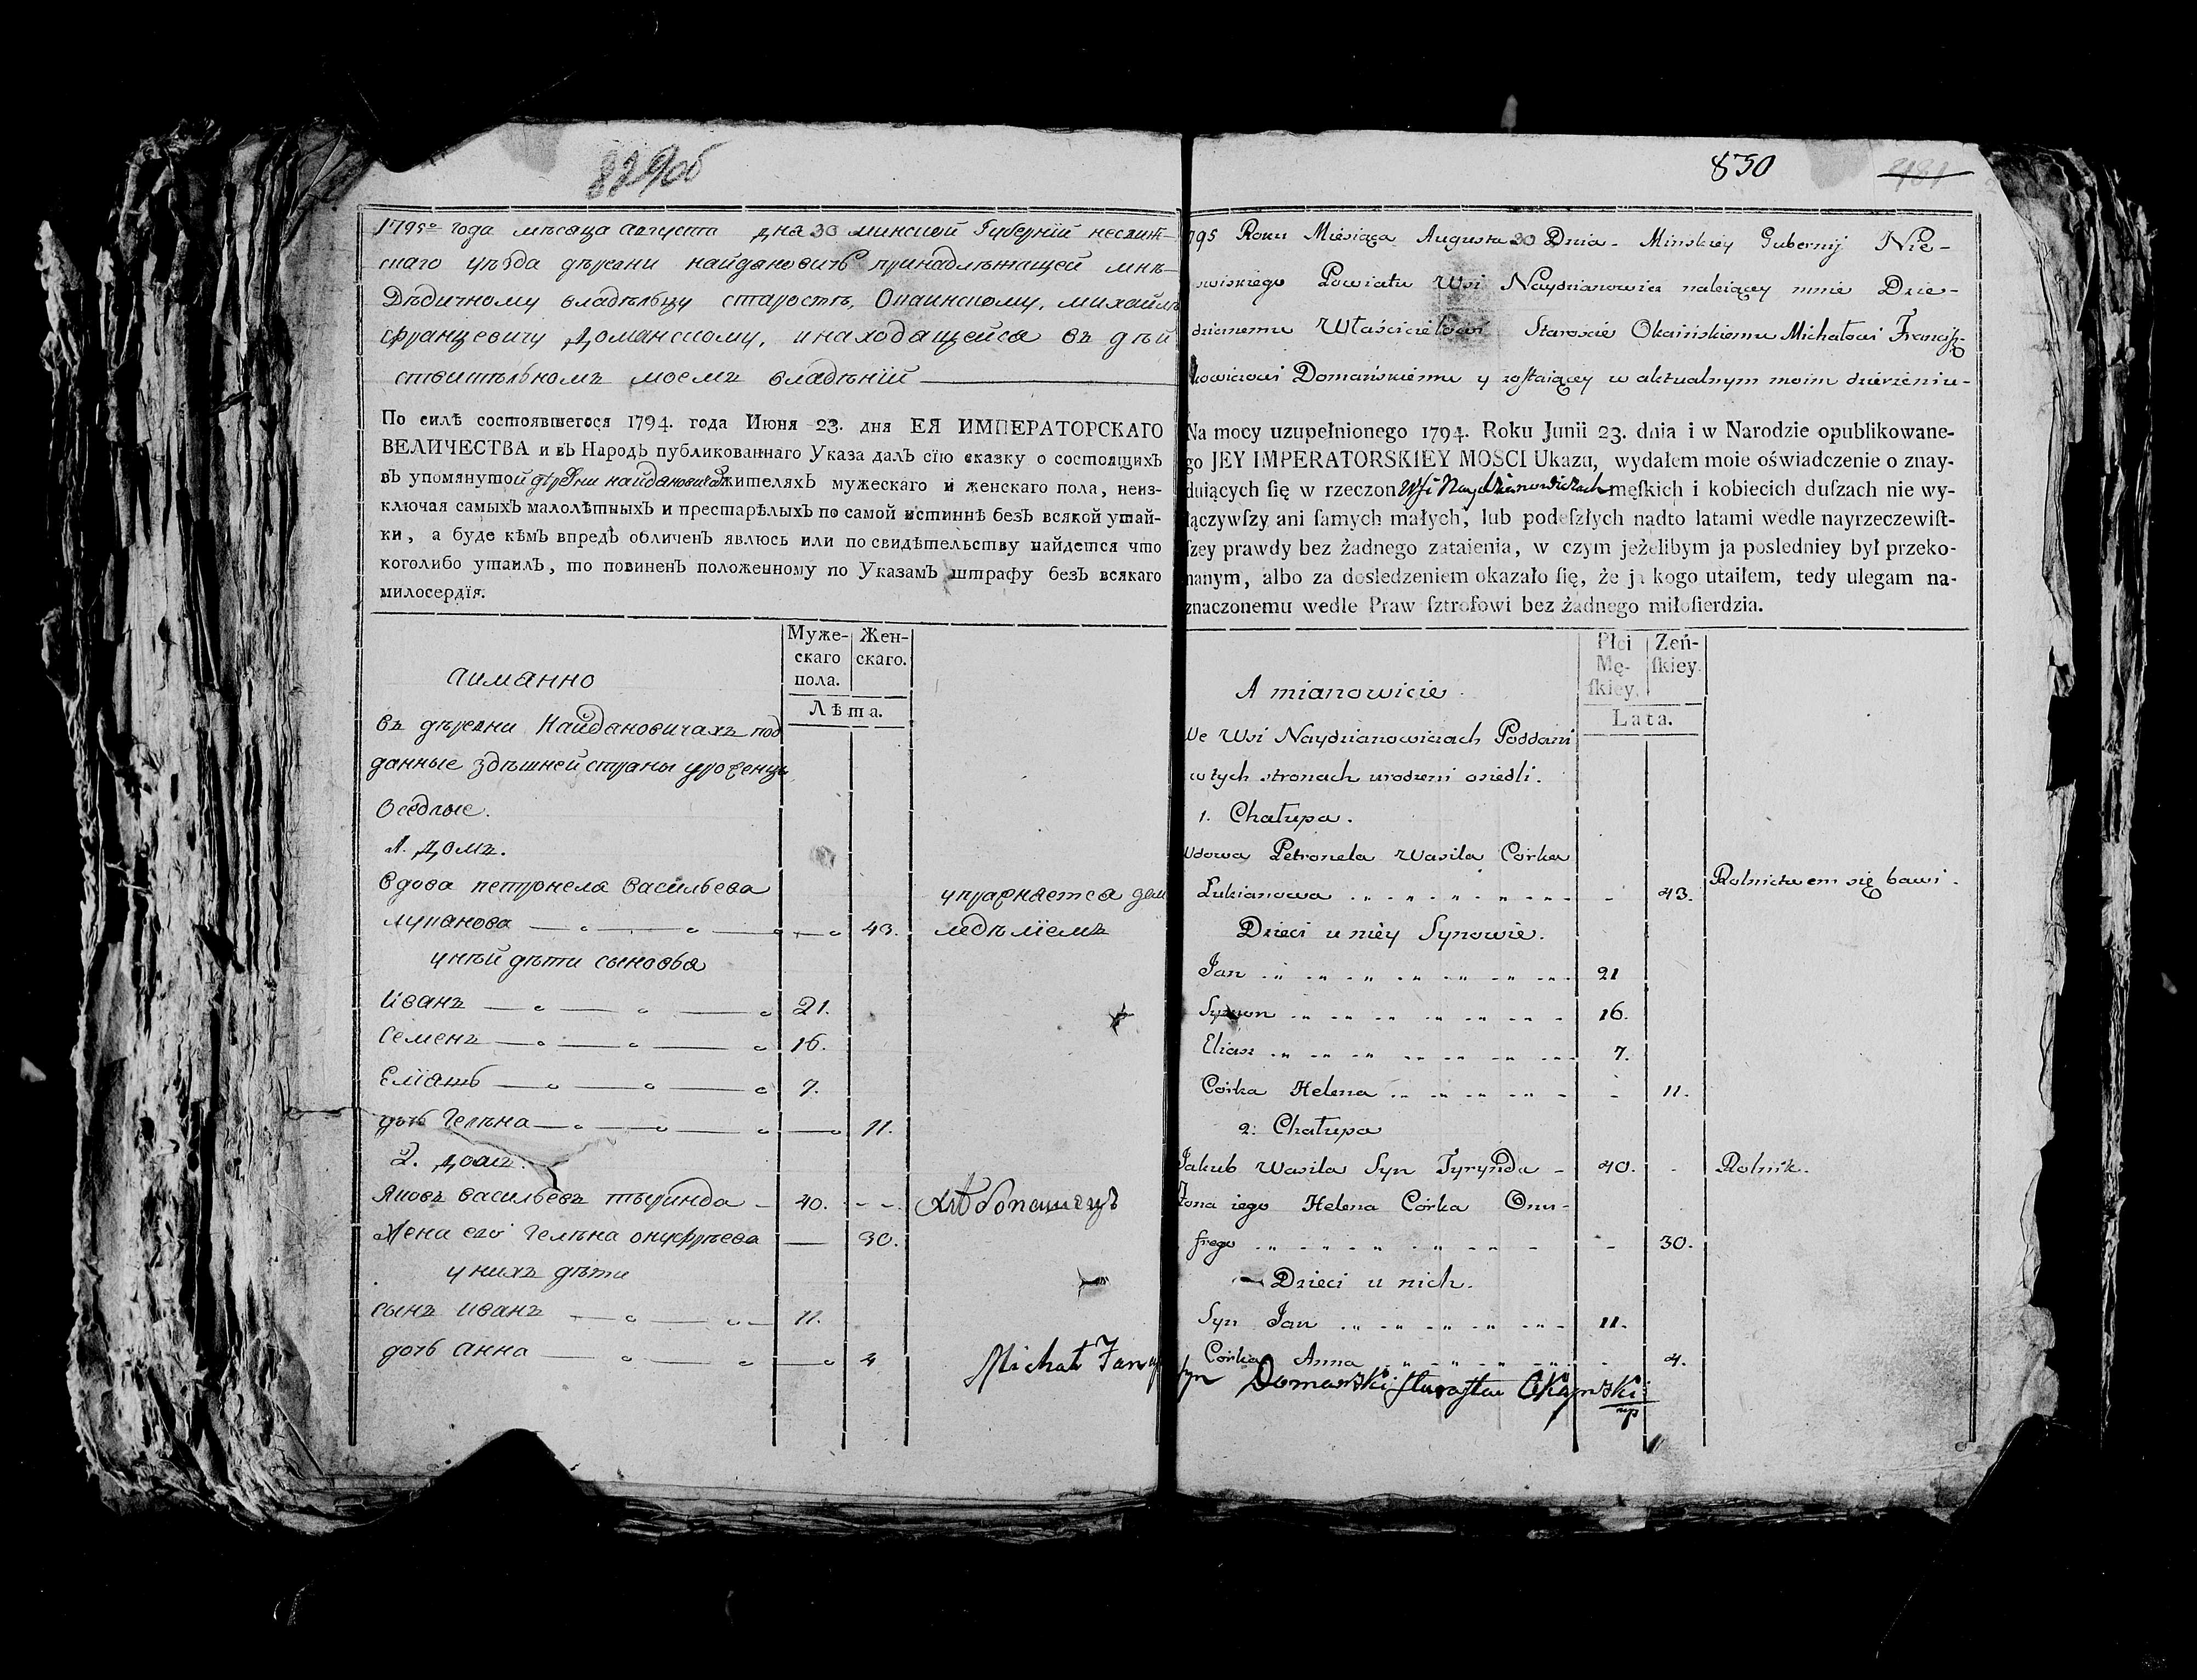 829об
1795го года мѣсяца августа дня 30 минской Губерніи несвиж-
скаго уѣзда дѣревни найдановичъ принадлѣжащей мнѣ
Дѣдичному владѣльцу старостѣ, Окаинскому, михайлѣ
францевичу Доманскому, инаходящейся въ дѣй
ствитѣльномъ моемъ владѣніи
По силѣ состоявшегося 1794. года Июня 23. дня ЕЯ ИМПЕРАТОРСКАГО
ВЕЛИЧЕСТВА и въ Народъ публикованнаго Указа далъ сїю сказку о состоящихъ
въ упомянутой дѣревни найдановичахъ жителяхъ мужескаго и женскаго пола, неиз-
ключая самыхъ малолѣтныхъ и престарѣлыхъ по самой истиннѣ безъ всякой утай-
ки, а буде кѣмъ впредь обличенъ явлюсь или по свидѣтельству найдется что
коголибо утаилъ, то повиненъ положенному по Указамъ штрафу безъ всякаго
милосердїя.
Муже-
скаго
пола.
Жен-
скаго.
Лѣта.
аиманно
въ дѣревни Найдановичахъ под
данные здѣшней страны уроженцы
оседлые.
1. домъ.
вдова петронеля васильева
лукянова 43. упражняется зем
ледѣліемъ
унѣй дѣти сыновья
иванъ 21.
семенъ 16.
Еліашъ 7.
дочь Гелѣна 11.
2. домъ.
яковъ васильевъ тырында 40. хлѣбопашецъ
жена его Гелѣна онуфрѣева 30.
уних дѣти
сынъ иванъ 11.
дочь анна 4
850
795 Roku Miesiąca Augusta 30 Dnia Minskiey Gubernij Nie-
swiskiego Powiatu Wsi Naydzianowicz należącey mnie Dzie-
dzicznemu Właścicielowi Staroscie Okaińskiemu Michałowi Francisz-
kowiczowi Domańskiemu y zostaiącey w aktualnym moim dzierżeniu-
Na mocy uzupełnionego 1794. Roku Junii 23. dnia i w Narodzie opublikowane-
go JEY IMPERATORSKIEY MOSCI Ukazu, wydałem moie oświadczenie o znay-
duiących ſię w rzeczon Wſi Naydzianowiczach męſkich i kobiecich duſzach nie wy-
łączywſzy ani ſamych małych, lub podeſzłych nadto latami wedle nayrzeczewiſt-
ſzey prawdy bez żadnego zataienia, w czym jeżelibym ja posledniey był przeko-
nanym, albo za dosledzeniem okazało ſię, że ja kogo utaiłem, tedy ulegam na-
znaczonemu wedle Praw ſztrofowi bez żadnego miłoſierdzia.
Płci
Mę-
ſkiey.
Zeń-
ſkiey.
Lata.
A mianowicie.
We Wsi Naydzianowiczach Poddani
w tych stronach urodzeni osiedli.
1. Chałupa.
Wdowa Petronela Wasila Corka
Łukianowa 43. Rolnictwem się bawi.
Dzieci u niey Synowie.
Jan 21
Symon 16.
Eliasz 7.
Corka Helena 11.
2. Chałupa
Jakub Wasila Syn Tyrynda 40. Rolnik.
Zona iego Helena Córka Onu-
frego 30.
Dzieci u nich.
Syn Jan 11.
Corka Anna 4.